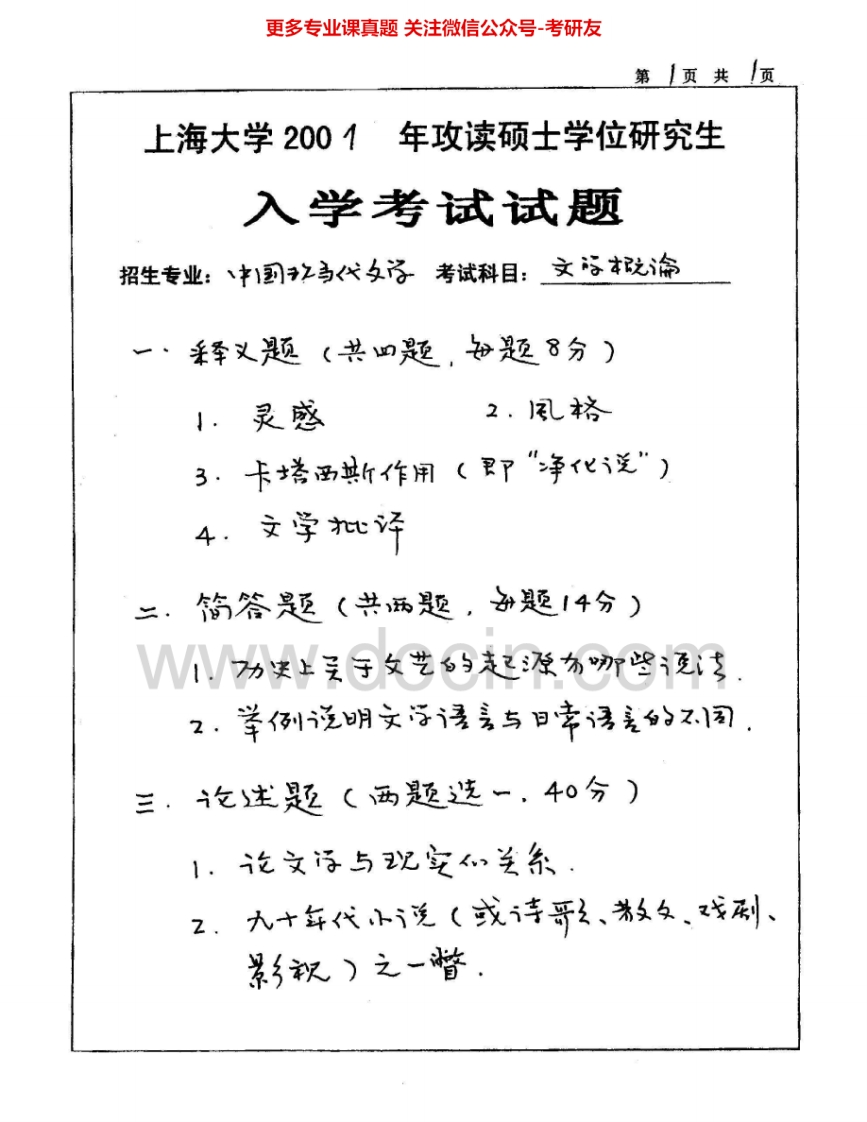 更多专业课真题 关注微信公众号-考研友
第 1 页 共 1 页
上海大学2001 年攻读硕士学位研究生
入学考试试题
招生专业：中国现当代文学 考试科目：文学概論
一. 释义题（共四题，每题8分）
1. 灵感 2. 風格
3. 卡塔西斯作用（即“净化说”）
4. 文学批评
二. 简答题（共两题，每题14分）
www.docin.com
1. 历史上关于文艺的起源有哪些说法.
2. 举例说明文学语言与日常语言的不同.
三. 论述题（两题选一，40分）
1. 论文学与现实的关系.
2. 九十年代小说（或诗歌、散文、戏剧、
影视）之一瞥.